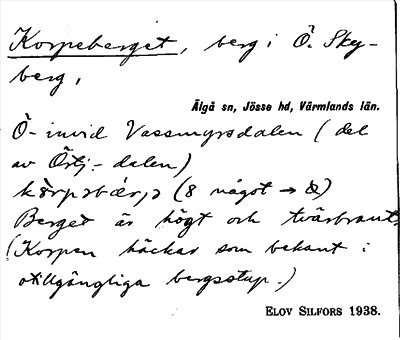 Korpeberget, berg i Ö. Sky-
berg,
Älgå sn, Jösse hd, Värmlands län.
Ö- invid Vassmyrsdalen (del
av Östj.- dalen)
(8 något →
Berget är högt och tvärbrant.
(Korpen häckar som bekant i
otillgängliga bergsstup.)
ELOV SILFORS 1938.